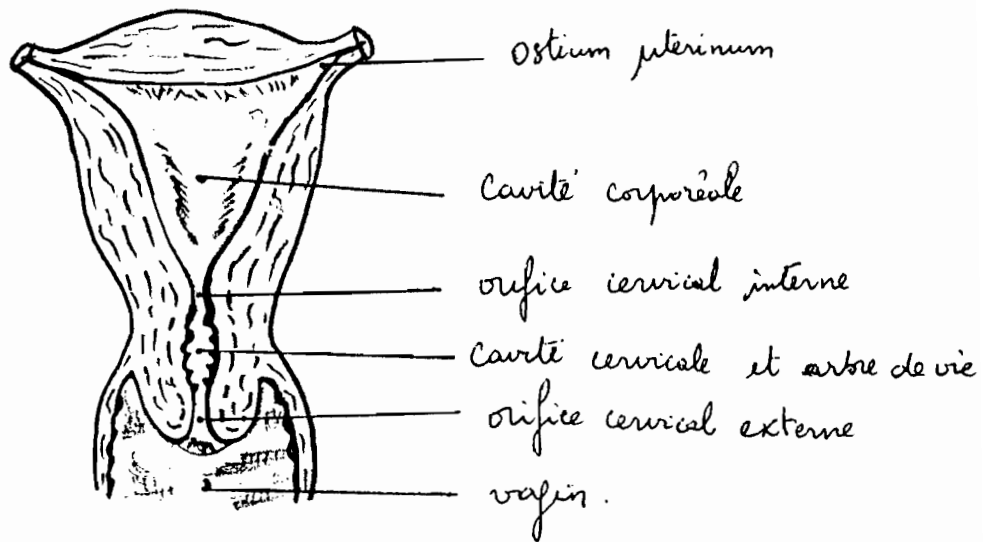 Ostium uterinum
Cavité corporéale
orifice cervical interne
Cavité cervicale et arbre de vie
orifice cervical externe
vagin.